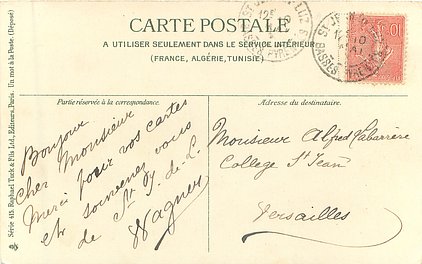 CARTE POSTALE
A UTILISER SEULEMENT DANS LE SERVICE INTÉRIEUR
(FRANCE, ALGÉRIE, TUNISIE)
Partie réservée à la correspondance.
Adresse du destinataire.
Bonjour
Cher Monsieur
Merci pour vos cartes
et souvenez vous
de St J. de L.
Wagner
Monsieur Alfred Labarrère
College St Jean
Versailles
Série 415. Raphael Tuck & Fils Ltd., Editeurs, Paris. Un mot à la Poste. (Déposé)
10
BASSES